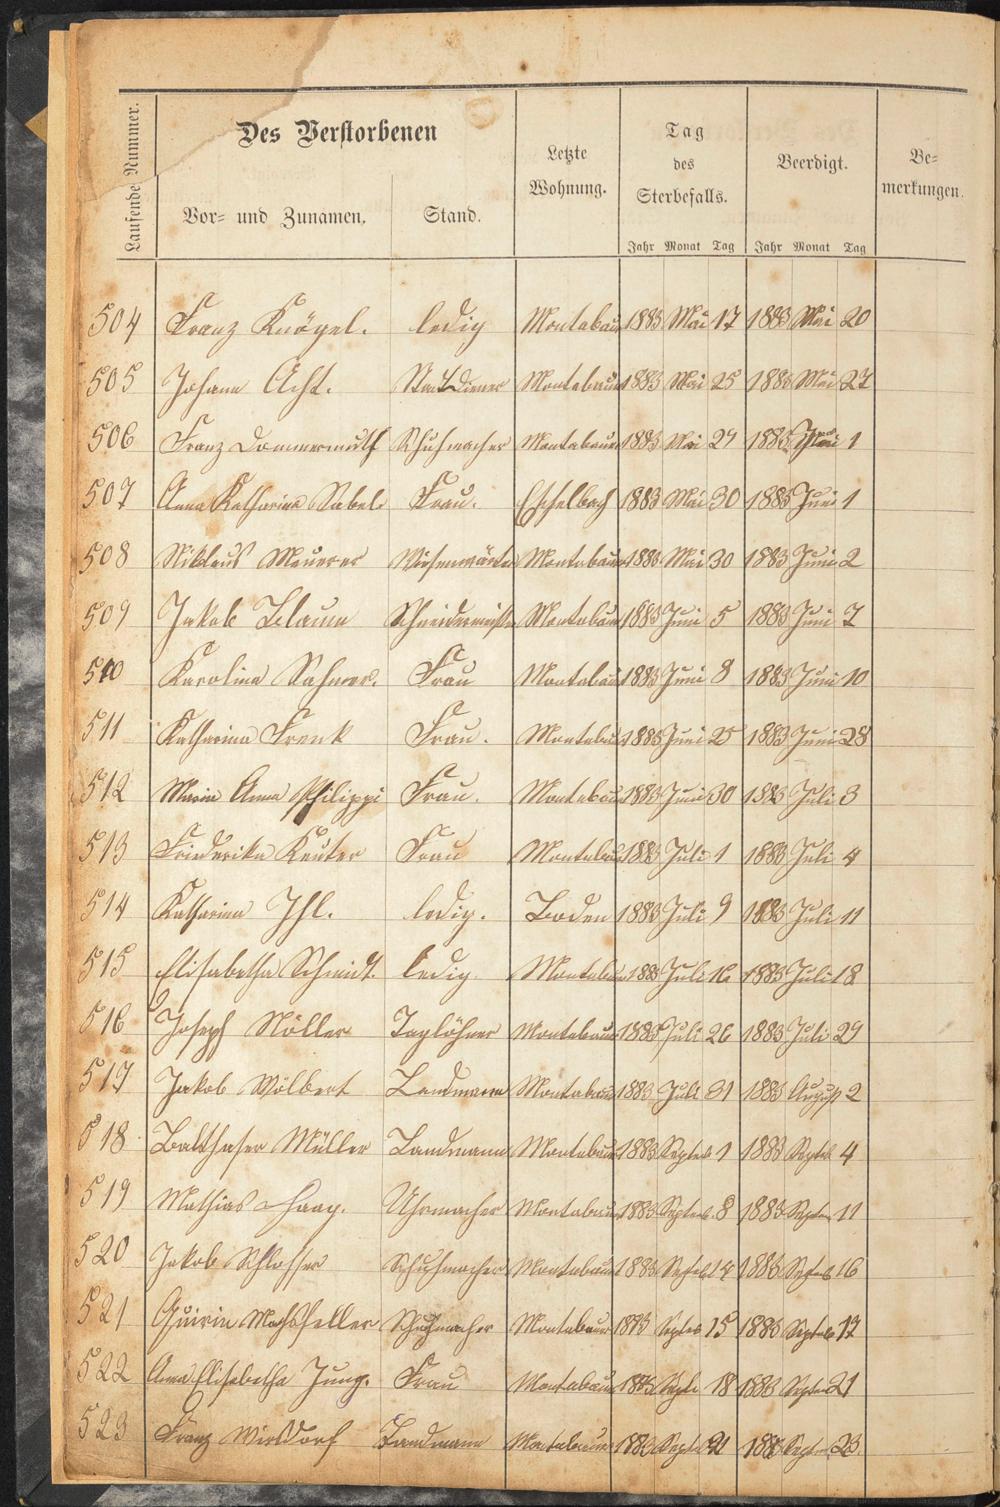 Laufende Nummer.
Des Verstorbenen
Vor- und Zunamen.
Stand.
Letzte
Wohnung.
Tag
des
Sterbefalls.
Jahr Monat Tag
Beerdigt.
Jahr Monat Tag
Be-
merkungen.
504 Franz Knögel. ledig Montabaur 1883 Mai 17 1883 Mai 20
505 Johann Acht. Montabaur 1883 Mai 25 1883 Mai 27
506 Franz Dommermuth Schuhmacher Montabaur 1883 Mai 29 1883 1
507 Anna Katharina Sabel Frau. Eschelbach 1883 Mai 30 1883 Juni 1
508 Niklaus Meuerer Wiesenwärter Montabaur 1883 Mai 30 1883 Juni 2
509 Jakob Blaum Schneidermeister Montabaur 1883 Juni 5 1883 Juni 7
510 Karolina Sahner. Frau Montabaur 1883 Juni 8 1883 Juni 10
511 Katharina Frenk Frau. Montabaur 1883 Juni 25 1883 Juni 28
512 Maria Anna Philippi Frau. Montabaur 1883 Juni 30 1883 Juli 3
513 Friederika Reuter Frau Montabaur 1883 Juli 1 1883 Juli 4
514 Katharina Ihl. ledig. Boden 1883 Juli 9 1883 Juli 11
515 Elisabetha Schmidt ledig Montabaur 1883 Juli 16 1883 Juli 18
516 Joseph Nöller Taglöhner Montabaur 1883 Juli 26 1883 Juli 29
517 Jakob Wölbert Landmann Montabaur 1883 Juli 31 1883 August 2
518 Balthaser Müller Landmann Montabaur 1883 Septeb 1 1883 Septeb 4
519 Mathias Haag. Uhrmacher Montabaur 1883 Septeb. 8 1883 Septem 11
520 Jakob Schlosser Schuhmacher Montabaur 1883 Septeb 14 1883 Septeb 16
521 Quirin Machsheller Schuhmacher Montabaur 1883 Septeb 15 1883 Septeb 17
522 Anna Elisabetha Jung. Frau Montabaur 1883 Septe 18 1883 Septem 21
523 Franz Wirsdorf Landmann Montabaur 1883 Septeb 21 1883 Septem 23